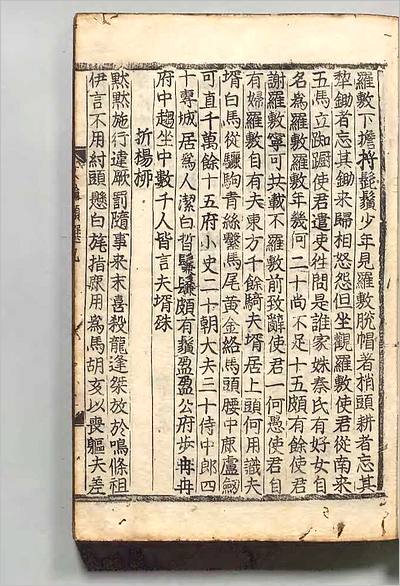 羅敷下擔捋髭鬚少年見羅敷脫帽者捎頭耕者忘其
犂鋤者忘其鋤来歸相怒怨但坐觀羅敷使君從南来
五馬立踟躕使君遣吏往問是誰家姝秦氏有好女自
名為羅敷羅敷年幾何二十尚不足十五頗有餘使君
謝羅敷寧可共載不羅敷前致辭使君一何愚使君自
有婦羅敷自有夫東方千餘騎夫壻居上頭何用識夫
壻白馬從驪駒青絲繫馬尾黃金絡馬頭腰中鹿盧劔
可直千萬餘十五府小史二十朝大夫三十侍中郎四
十專城居爲人潔白晳鬑鬑頗有鬚盈盈公府步冉冉
府中趨坐中數千人皆言夫壻殊
折楊柳
黙黙施行違厥罰隨事来末喜殺龍逢桀放於鳴條祖
伊言不用紂頭懸白旄指鹿用爲馬胡亥以喪軀夫差